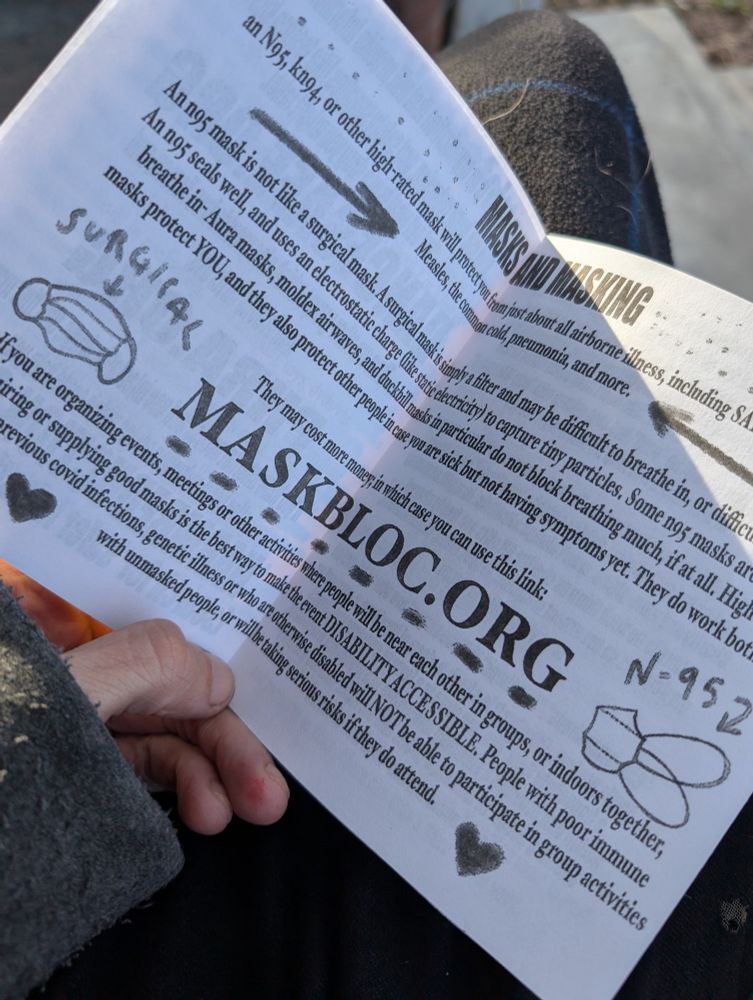 MASKS AND MASKING
an N95, kn94, or other high-rated mask will protect you from just about all airborne illness, including SA
Measles, the common cold, pneumonia, and more.
An n95 mask is not like a surgical mask. A surgical mask is simply a filter and may be difficult to breathe in, or difficu
An n95 seals well, and uses an electrostatic charge (like static electricity) to capture tiny particles. Some n95 masks a
breathe in- Aura masks, moldex airwaves, and duckbill masks in particular do not block breathing much, if at all. High
masks protect YOU, and they also protect other people in case you are sick but not having symptoms yet. They do work both
SURGICAL
They may cost more money, in which case you can use this link:
MASKBLOC.ORG
N-95
If you are organizing events, meetings or other activities where people will be near each other in groups, or indoors together,
uiring or supplying good masks is the best way to make the event DISABILITY ACCESSIBLE. People with poor immune
previous covid infections, genetic illness or who are otherwise disabled will NOT be able to participate in group activities
with unmasked people, or will be taking serious risks if they do attend.